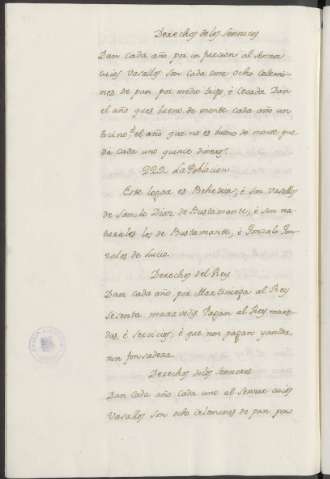 Derechos de los Senores
Dan cada año por infurcion al Senor
cuios Vasallos son cada uno ocho celemi-
nes de pan por medio trigo é cevada Dan
el año que es bueno de monte cada año un
tocino é el año que no es bueno de monte que
da cada uno quince dineros.
La Poblacion
Este logar es Behetria, é son Vasallos
de Sancho Diaz de Bustamante, é son na
turales los de Bustamante, é Gonzalo Gon
zales de Lucio.
Derechos del Rey
Dan cada año por Martiniega al Rey
sesenta maravedis Pagan al Rey mone
das é servicios, é que non pagan yantar,
nin fonsadera.
Derechos de los Senores
Dan cada año cada uno al Senor cuios
Vasallos son ocho celemines de pan por